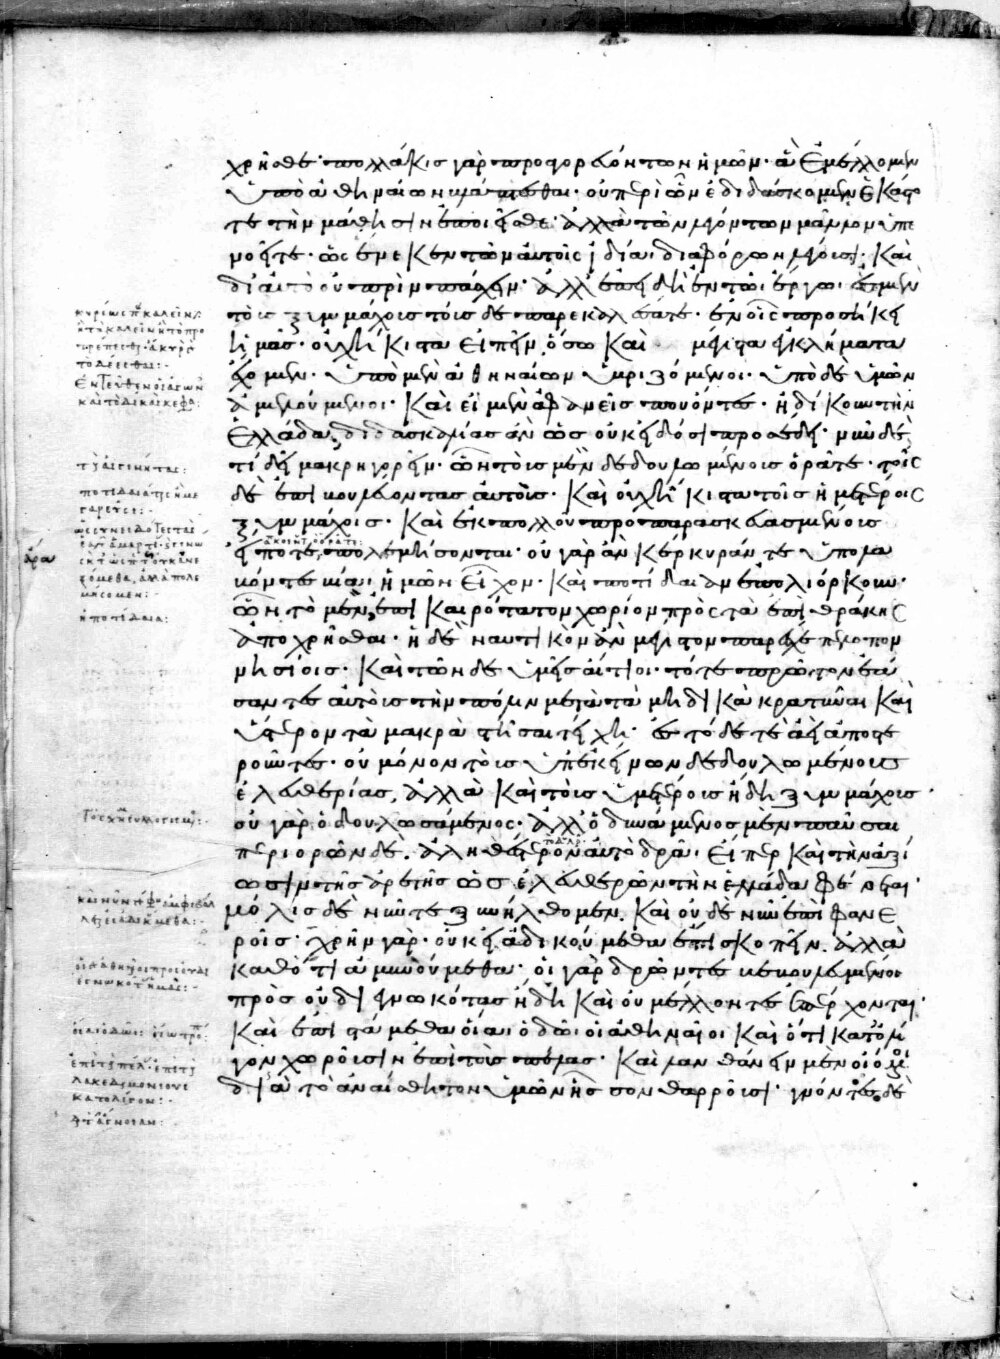 χρῆσθε· πολλάκις γὰρ προαγορευόντων ἡμῶν· ἃ ἐμέλλομεν
ὑπὸ ἀθηναίων βλάπτεσθαι· οὐ περὶ ὧν ἐδιδάσκομεν ἑκάσ
τε τὴν μάθησιν ἐποιεῖσθε· ἀλλὰ τῶν λεγόντων μᾶλλον ὑπε
νοεῖτε· ὡς ἕνεκεν τῶν αὐτοῖς ἰδίαι διαφόρων λέγουσι· καὶ
δι' αὐτὸ οὐ πρὶν πάσχειν· ἀλλ' ἐπειδὴ ἐν τῶι ἔργωι ἐσμὲν
τοὺς ξυμμάχους τούσδε παρεκαλέσατε· ἐν οἷς προσήκει
ἡμᾶς· οὐχ' ἥκιστα εἰπεῖν, ὅσω καὶ μέγιστα ἐγκλήματα
ἔχομεν· ὑπὸ μὲν ἀθηναίων ὑβριζόμενοι· ὑπὸ δὲ ὑμῶν
ἀμελούμενοι· καὶ εἰ μὲν ἀφανεῖς που ὄντες· ἠδίκουν τὴν
ἑλλάδα, διδασκαλίας ἂν ὡς οὐκ εἰδόσι προσέδει· νῦν δὲ
τί δεῖ μακρηγορεῖν· ὧν τοὺς μὲν δεδουλωμένους ὁρᾶτε· τοῖς
δὲ ἐπιβουλεύοντας αὐτούς· καὶ οὐχ' ἥκιστα τοῖς ἡμετέροις
ξυμμάχοις· καὶ ἐκ πολλοῦ προπαρασκευασμένους
εἴ ποτε, πολεμήσονται· οὐ γὰρ ἂν κέρκυράν τε ὑπολα
βόντες βίαι ἡμῶν εἶχον· καὶ ποτίδαιαν ἐπολιόρκουν·
ὧν τὸ μὲν, ἐπικαιρότατον χωρίον πρὸς τὰ ἐπὶ θράκης
ἀποχρῆσθαι· ἡ δὲ ναυτικὸν ἂν μέγιστον παρέσχε πελοπον
νησίοις· καὶ τῶνδε ὑμεῖς αἴτιοι· τό τε πρῶτον ἐά
σαντες αὐτοὺς τὴν πόλιν μετὰ τὰ μηδικὰ κρατῦναι καὶ
ὕστερον τὰ μακρὰ στῆσαι τείχη· ἐς τόδε τε ἀεὶ ἀποστε
ροῦντες· οὐ μόνον τοὺς ὑπ' ἐκείνων δεδουλωμένους
ἐλευθερίας, ἀλλὰ καὶ τοὺς ὑμετέρους ἤδη ξυμμάχους·
οὐ γὰρ ὁ δουλωσάμενος· ἀλλ' ὁ δυνάμενος μὲν παῦσαι
περιορῶν δὲ, ἀληθέστερον αὐτὸ δρᾶι· εἴπερ καὶ τὴν ἀξί
ωσιν τῆς ἀρετῆς ὡς ἐλευθερῶν τὴν ἑλλάδα φέρεται·
μόλις δὲ νῦν τε ξυνήλθομεν· καὶ οὐδὲ νῦν ἐπὶ φανε
ροῖς· χρῆν γὰρ· οὐκ εἰ ἀδικούμεθα ἔτι σκοπεῖν· ἀλλὰ
καθότι ἀμυνούμεθα· οἱ γὰρ δρῶντες βεβουλευμένοι
πρὸς οὐ διεγνωκότας ἤδη καὶ οὐ μέλλοντες ἐπέρχονται·
καὶ ἐπιστάμεθα οἵαι ὁδῶι οἱ ἀθηναῖοι καὶ ὅτι κατ' ὀλί
γον χωροῦσιν ἐπὶ τοὺς πέλας· καὶ λανθάνειν μὲν οἰόμενοι
διὰ τὸ ἀναίσθητον ὑμῶν ἧσσον θαρροῦσι· γνόντες δὲ
τοὺς αἰγινήτας:
ἄρα
ἀκουστ ὁρᾶτε:
ἡ ποτίδαια: